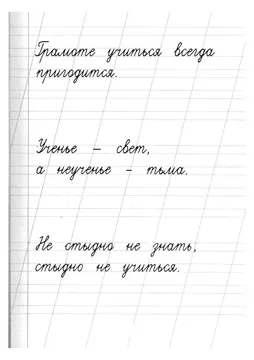 Грамоте учиться всегда
пригодится.
Ученье – свет,
а неученье – тьма.
Не стыдно не знать,
стыдно не учиться.